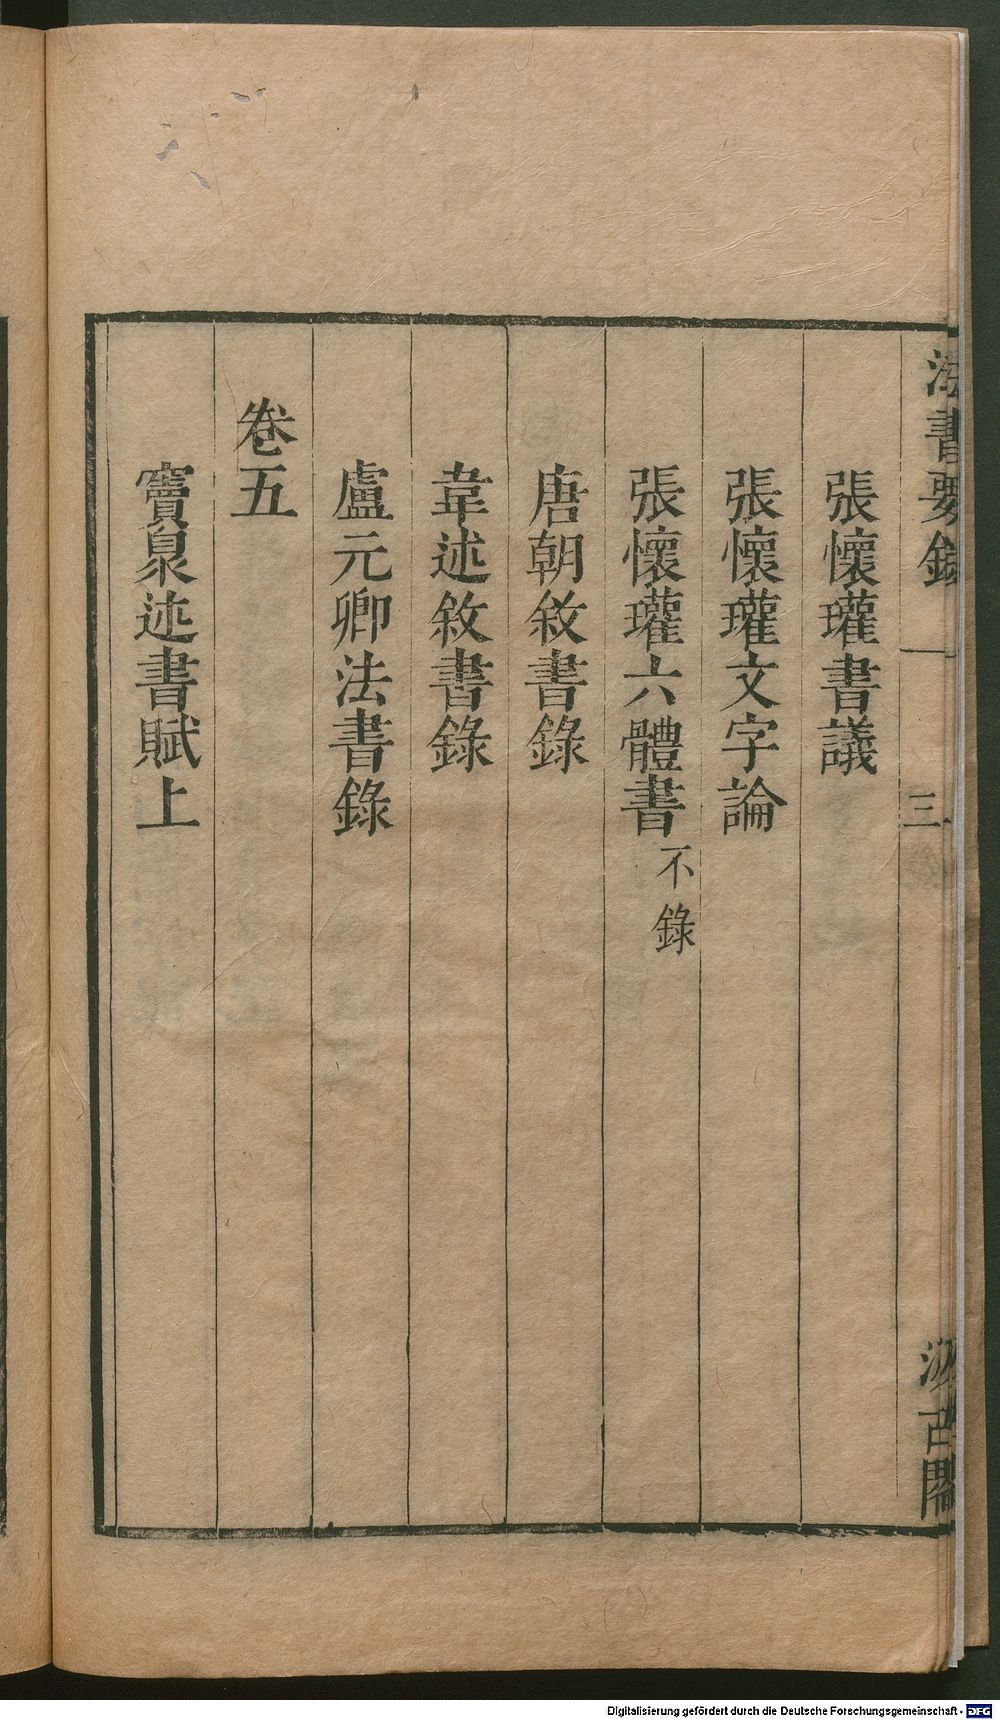 法書要錄 三 汲古閣
張懷瓘書議
張懷瓘文字論
張懷瓘六體書 不錄
唐朝敘書錄
韋述敘書錄
盧元卿法書錄
卷五
竇泉述書賦上
Digitalisierung gefördert durch die Deutsche Forschungsgemeinschaft - DFG